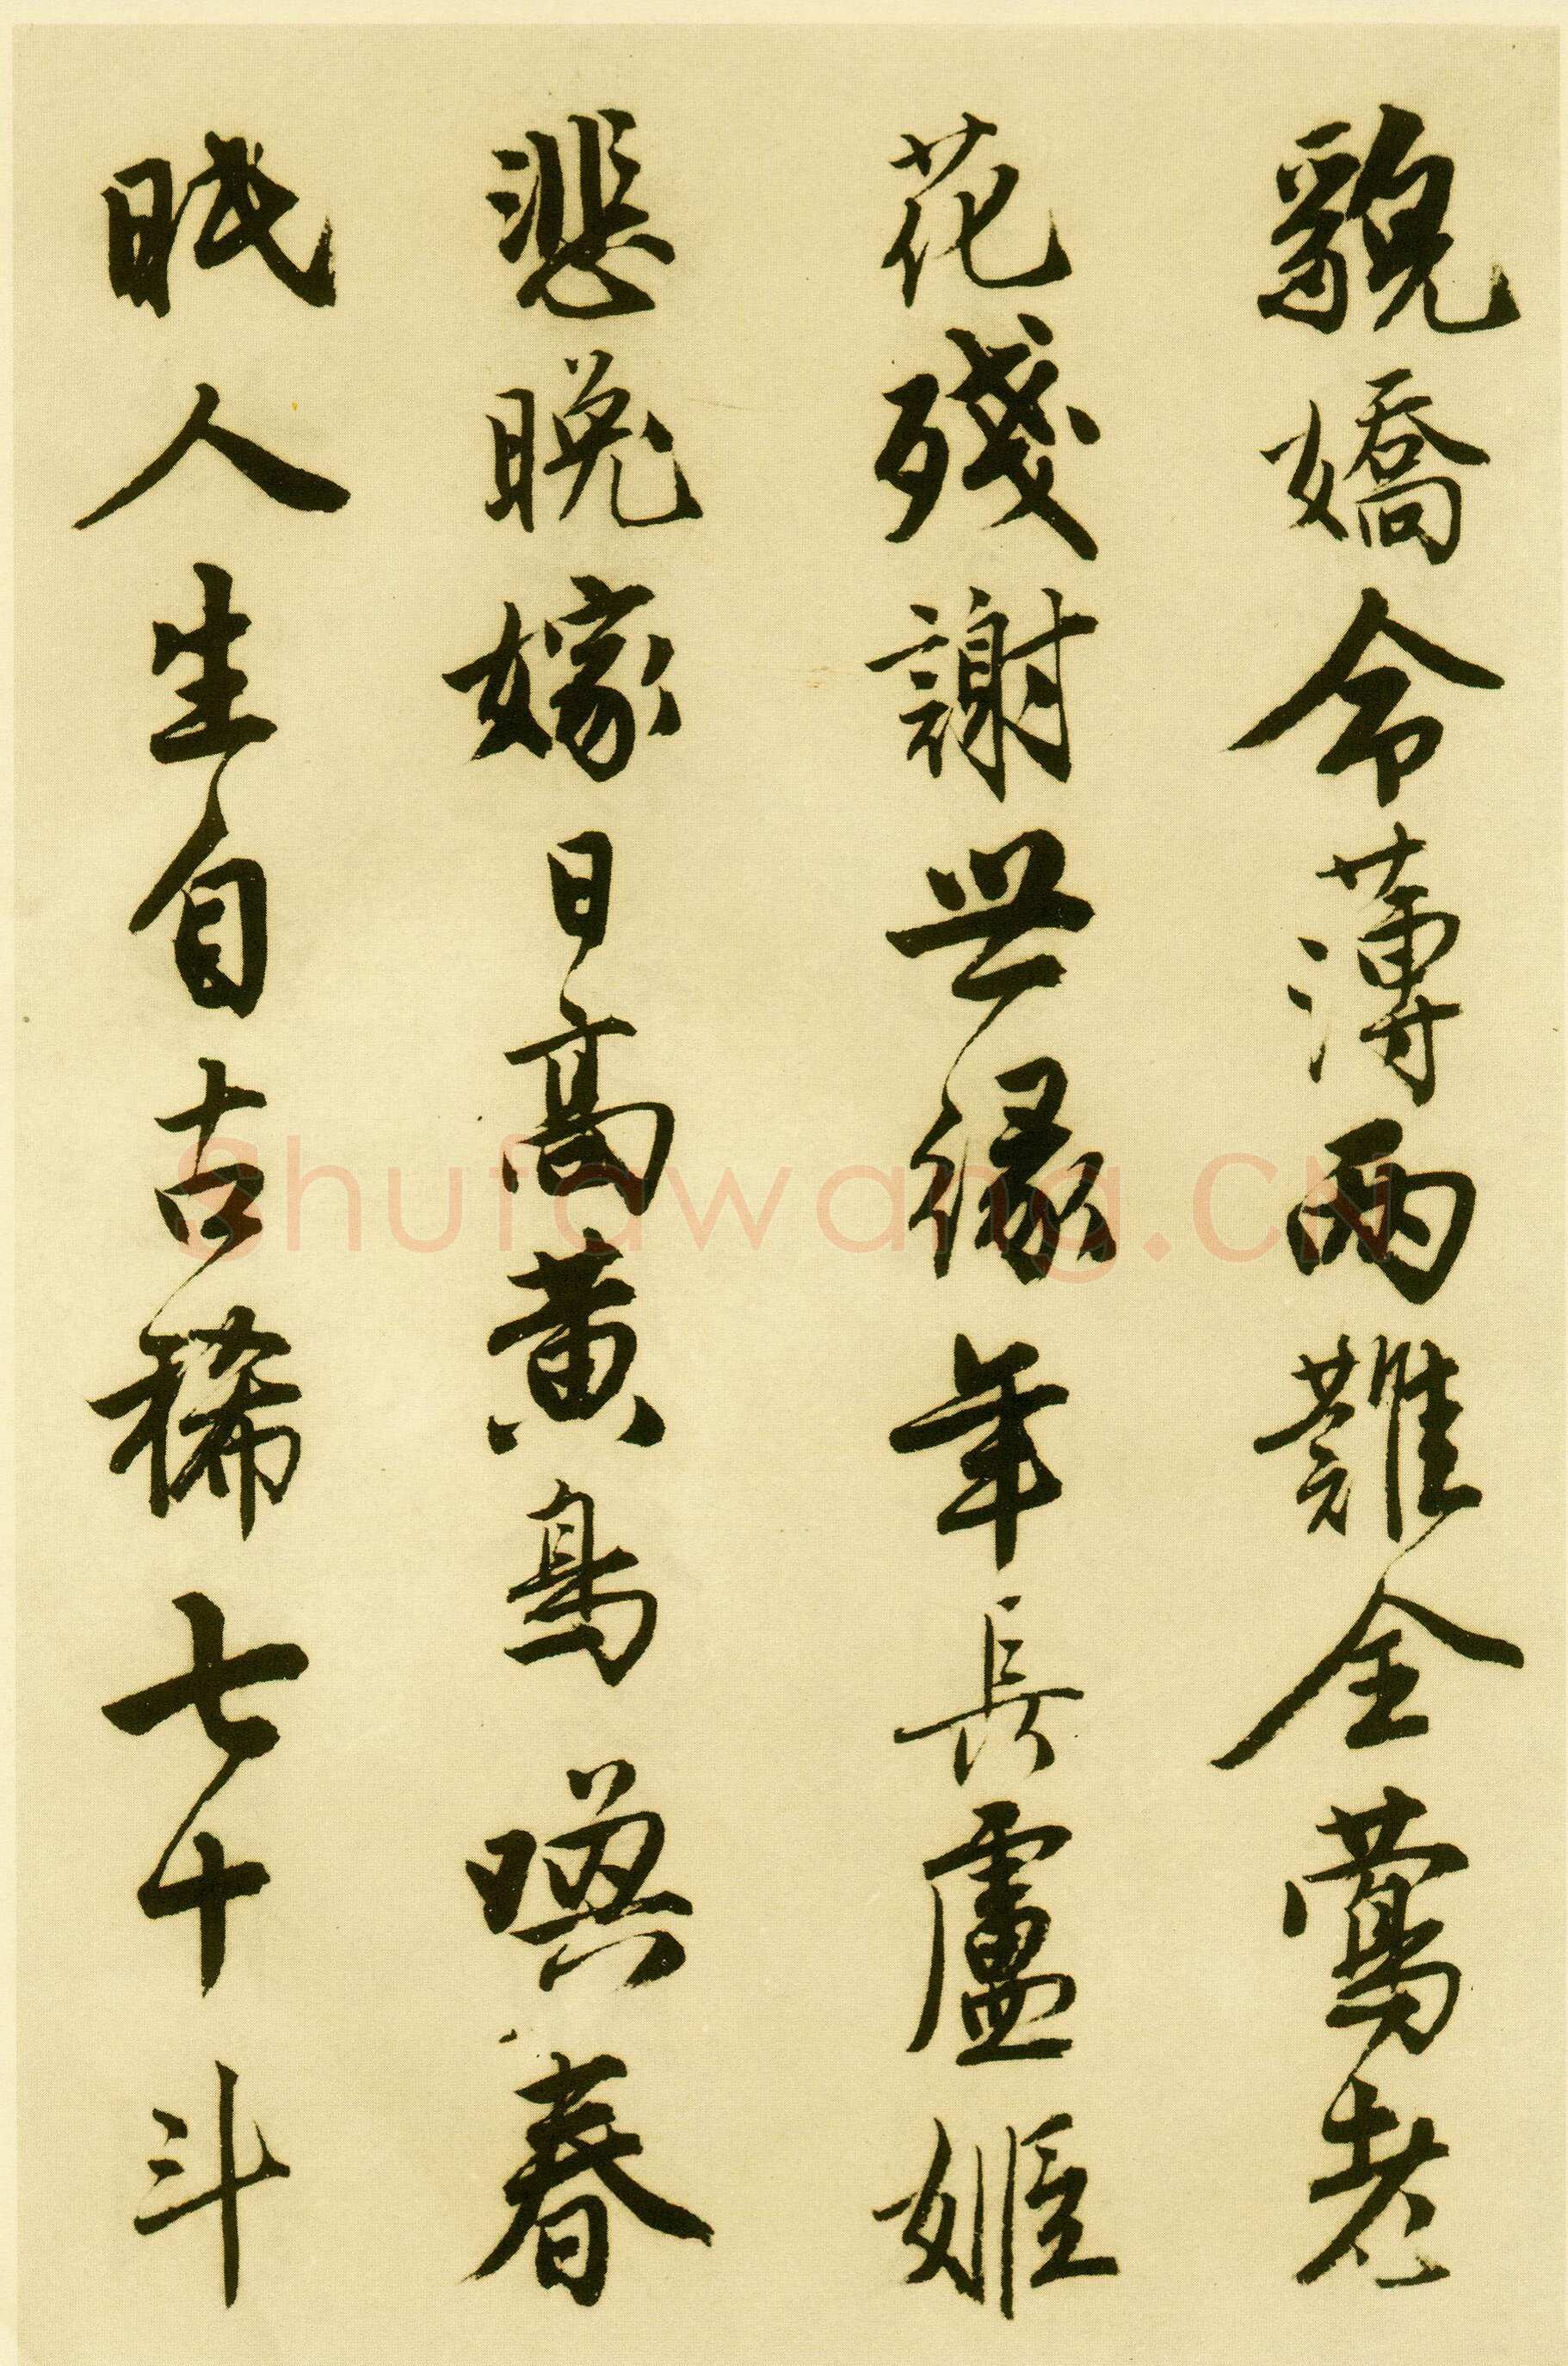 貌嬌命薄兩難全鶯老
花殘謝世緣年長盧姬
悲晚嫁日高黃鳥喚春
眠人生自古稀七十斗
Shufawang.CN